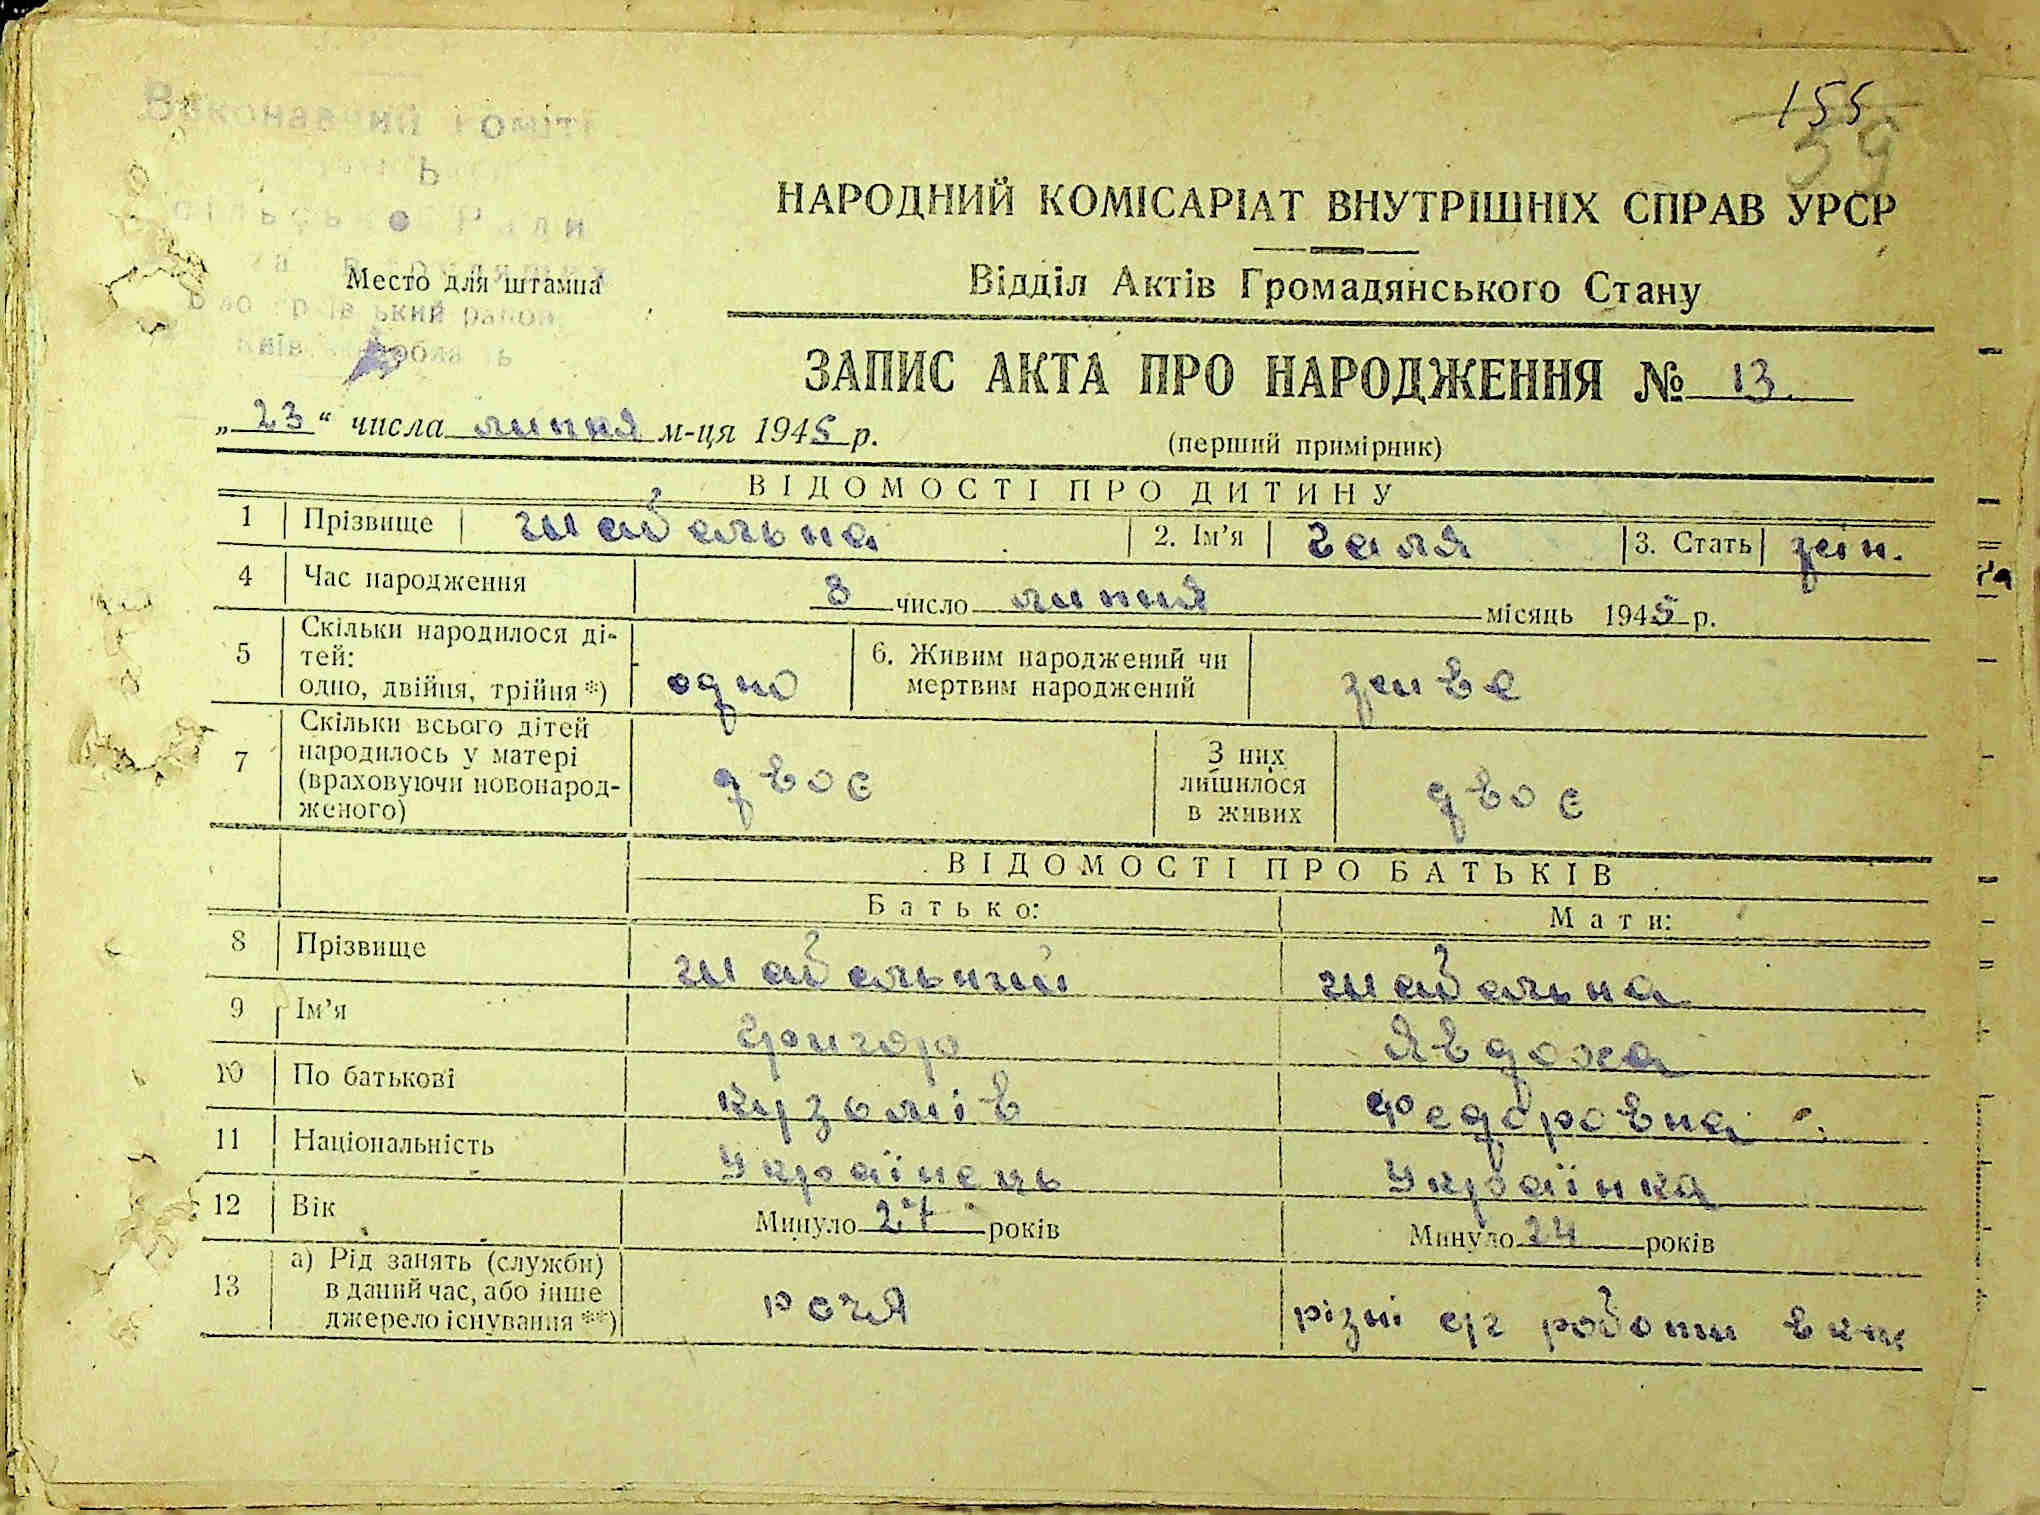 155
59
Виконавчий
Ради
НАРОДНИЙ КОМІСАРІАТ ВНУТРІШНІХ СПРАВ УРСР
Место для штампа
Відділ Актів Громадянського Стану
ЗАПИС АКТА ПРО НАРОДЖЕННЯ № 13
„23“ числа липня м-ця 1945 р.
(перший примірник)
ВІДОМОСТІ ПРО ДИТИНУ
1 Прізвище Шабельна 2. Ім’я Галя 3. Стать жін.
4 Час народження 8 число липня місяць 1945 р.
5 Скільки народилося ді-
тей:
одно, двійня, трійня *) одно
6. Живим народжений чи
мертвим народжений живе
7 Скільки всього дітей
народилось у матері
(враховуючи новонарод-
женого) двоє
З них
лишилося
в живих двоє
ВІДОМОСТІ ПРО БАТЬКІВ
Батько: Мати:
8 Прізвище Шабельний Шабельна
9 Ім’я Григор Явдоха
10 По батькові Кузьмів Федоровна
11 Національність Українець Українка
12 Вік Минуло 27 років Минуло 24 років
13 а) Рід занять (служби)
в даний час, або інше
джерело існування **) різні с/г роботи в